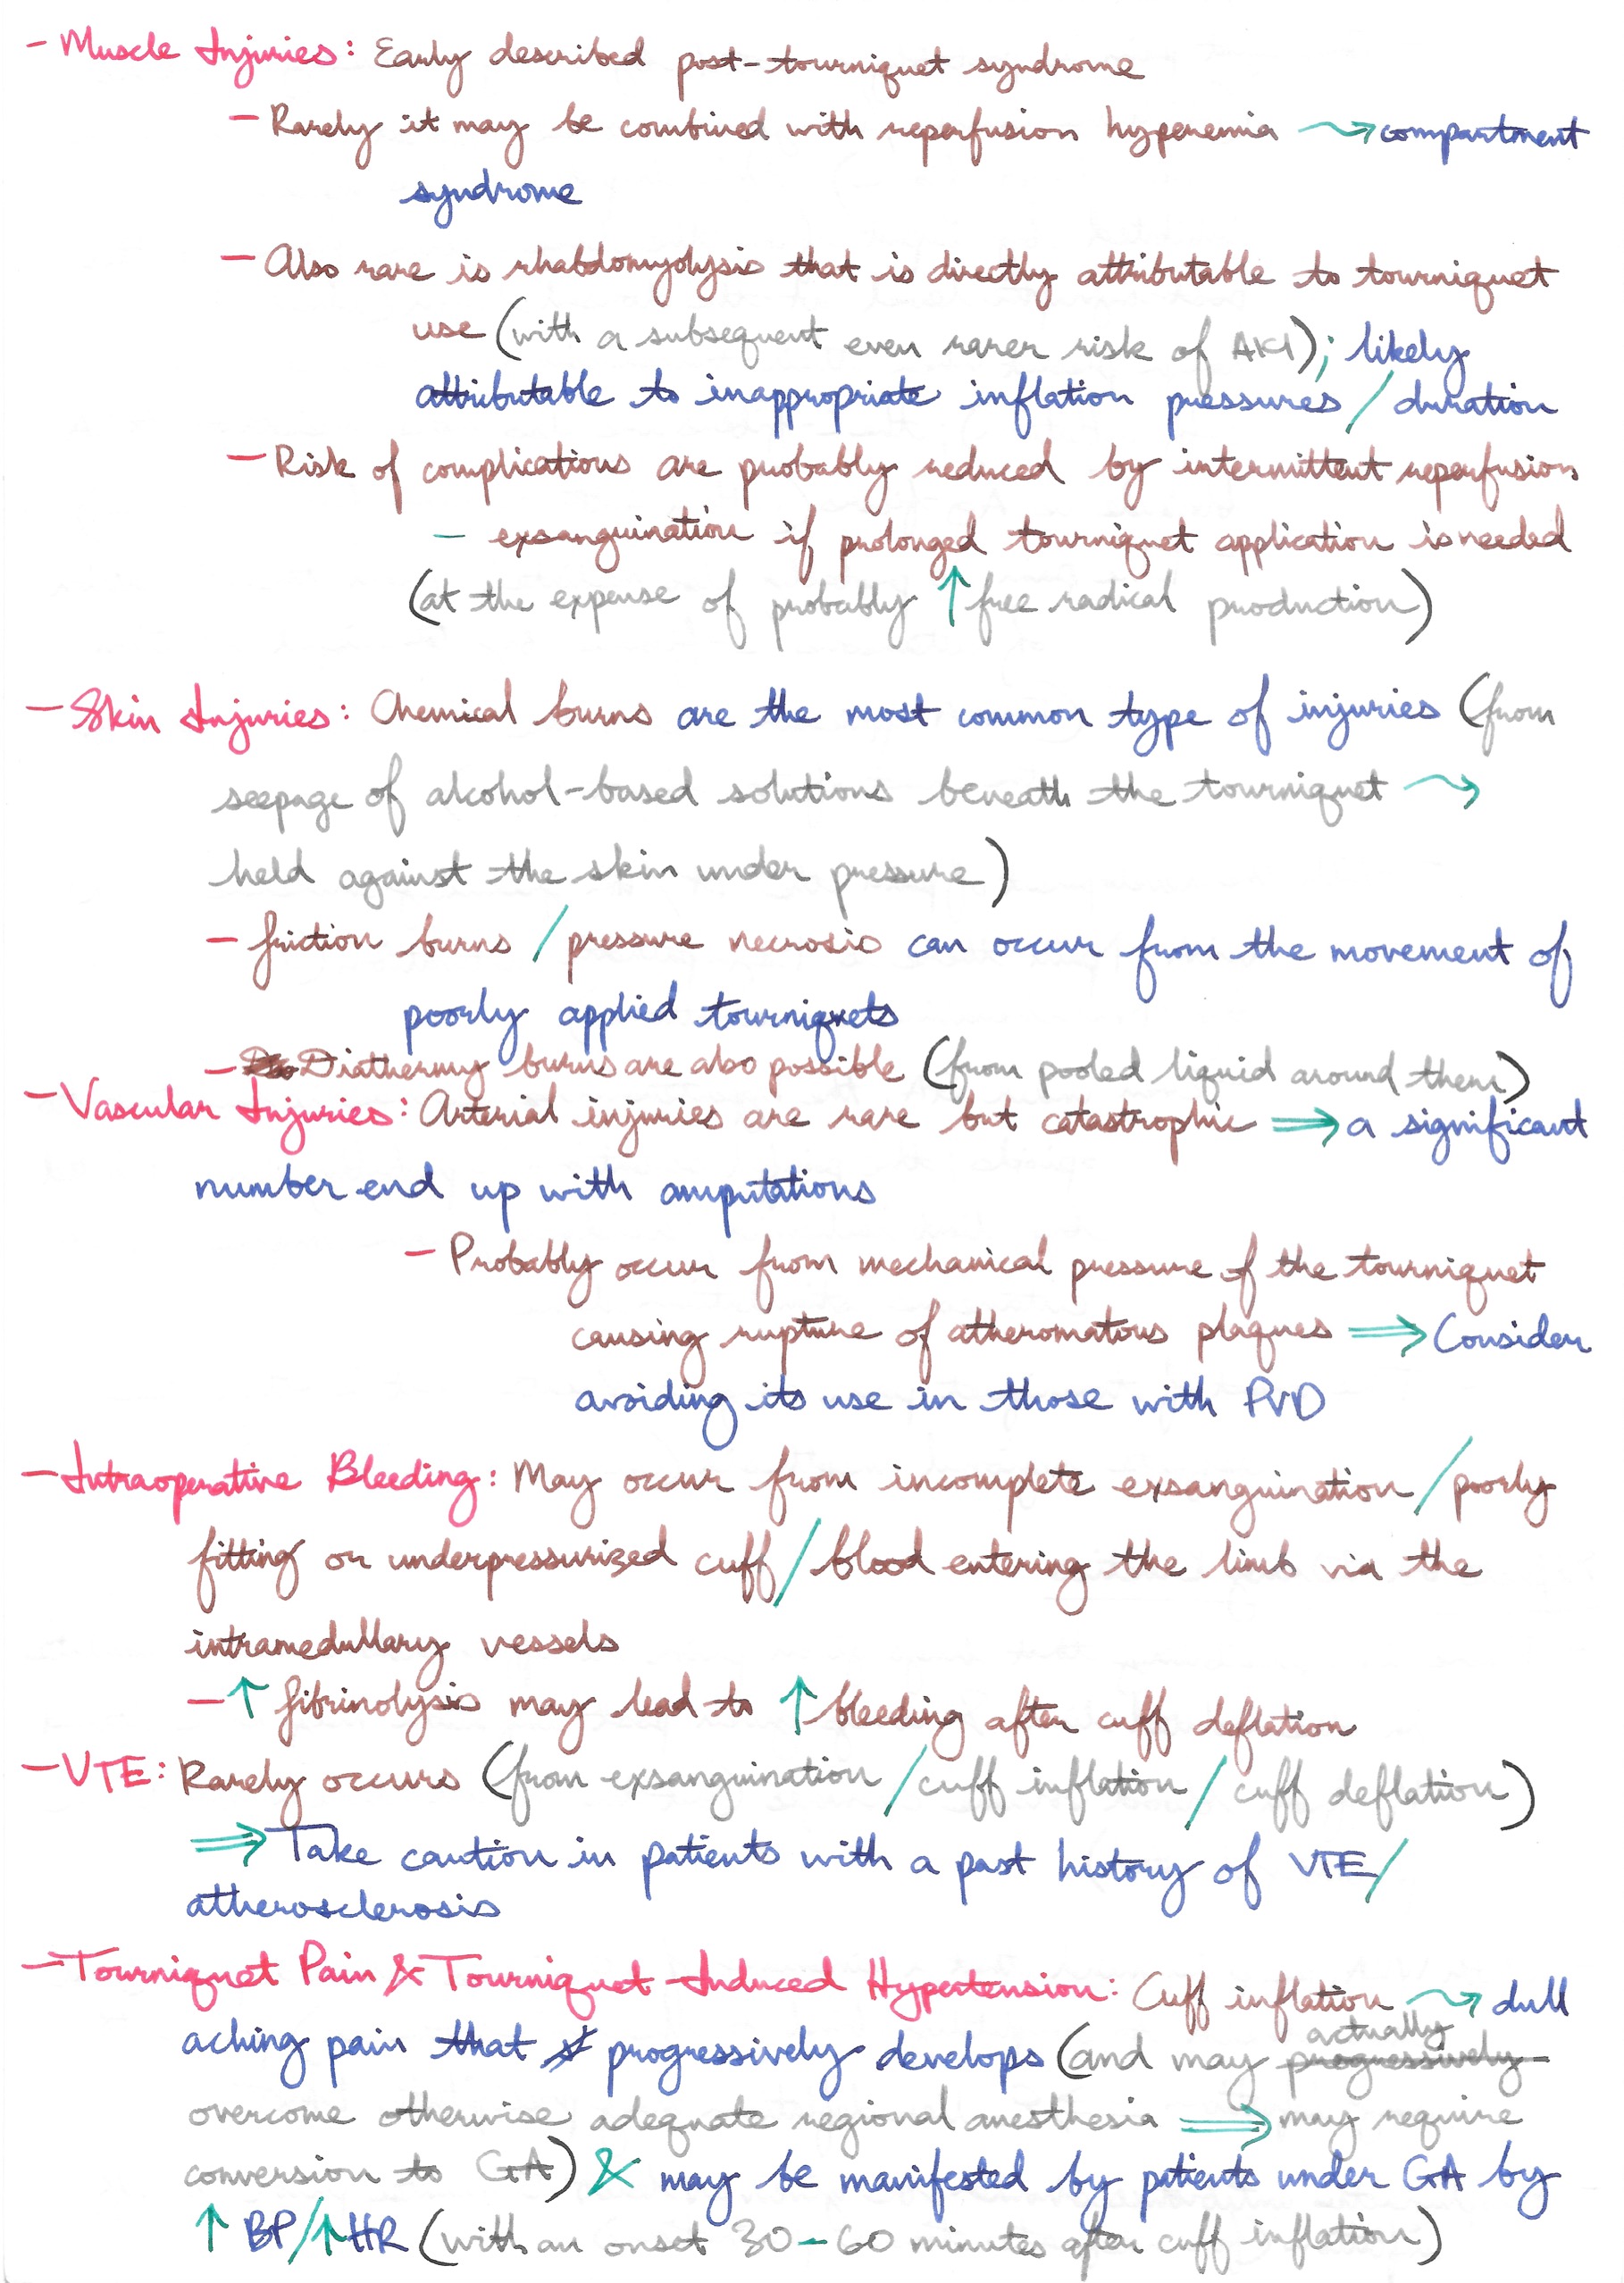 - Muscle Injuries: Early described post-tourniquet syndrome
- Rarely it may be combined with reperfusion hyperemia ⇝ compartment
syndrome
- Also rare is rhabdomyolysis that is directly attributable to tourniquet
use (with a subsequent even rarer risk of AKI); likely
attributable to inappropriate inflation pressures / duration
- Risk of complications are probably reduced by intermittent reperfusion
- exsanguination if prolonged tourniquet application is needed
(at the expense of probably ↑ free radical production)
- Skin Injuries: Chemical burns are the most common type of injuries (from
seepage of alcohol-based solutions beneath the tourniquet ⇝
held against the skin under pressure)
- friction burns / pressure necrosis can occur from the movement of
poorly applied tourniquets
- Diathermy burns are also possible (from pooled liquid around them)
- Vascular Injuries: Arterial injuries are rare but catastrophic ⇒ a significant
number end up with amputations
- Probably occur from mechanical pressure of the tourniquet
causing rupture of atheromatous plaques ⇒ Consider
avoiding its use in those with PVD
- Intraoperative Bleeding: May occur from incomplete exsanguination / poorly
fitting or underpressurized cuff / blood entering the limb via the
intramedullary vessels
- ↑ fibrinolysis may lead to ↑ bleeding after cuff deflation
- VTE: Rarely occurs (from exsanguination / cuff inflation / cuff deflation)
⇒ Take caution in patients with a past history of VTE /
atherosclerosis
- Tourniquet Pain & Tourniquet-Induced Hypertension: Cuff inflation ⇝ dull
aching pain that progressively develops (and may actually
overcome otherwise adequate regional anesthesia ⇒ may require
conversion to GA) & may be manifested by patients under GA by
↑ BP / ↑ HR (with an onset 30-60 minutes after cuff inflation)